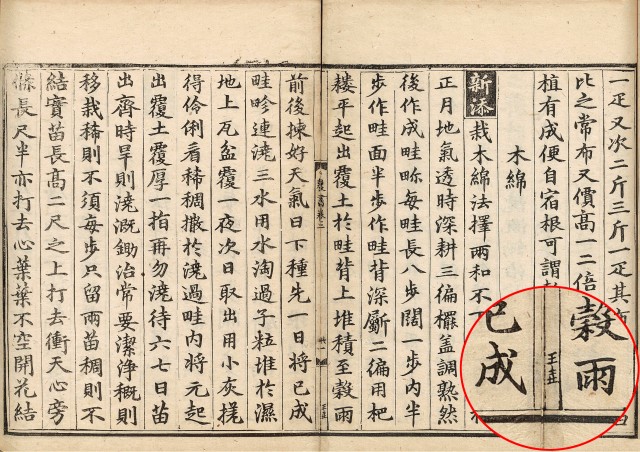 一疋又次二斤三斤一疋其
比之常布又價高一二倍
植有成便自宿根可謂
木綿
新添 栽木綿法擇兩和不
正月地氣透時深耕三徧䎱盖調熟然
後作成畦畛每畦長八步闊一步內半
步作畦面半步作畦背深斸二徧用杷
耬平起出覆土於畦背上堆積至穀雨
書卷二
王正
前後揀好天氣日下種先一日將已成
畦畛連澆三水用水淘過子粒堆於濕
地上瓦盆覆一夜次日取出用小灰搓
得伶俐看稀稠撒於澆過畦內將元起
出覆土覆厚一指再勿澆待六七日苗
出齊時旱則澆溉鋤治常要潔淨穊則
移栽稀則不須每步只留兩苗稠則不
結實苗長高二尺之上打去衝天心旁
條長尺半亦打去心葉葉不空開花結
穀雨
王正
已成